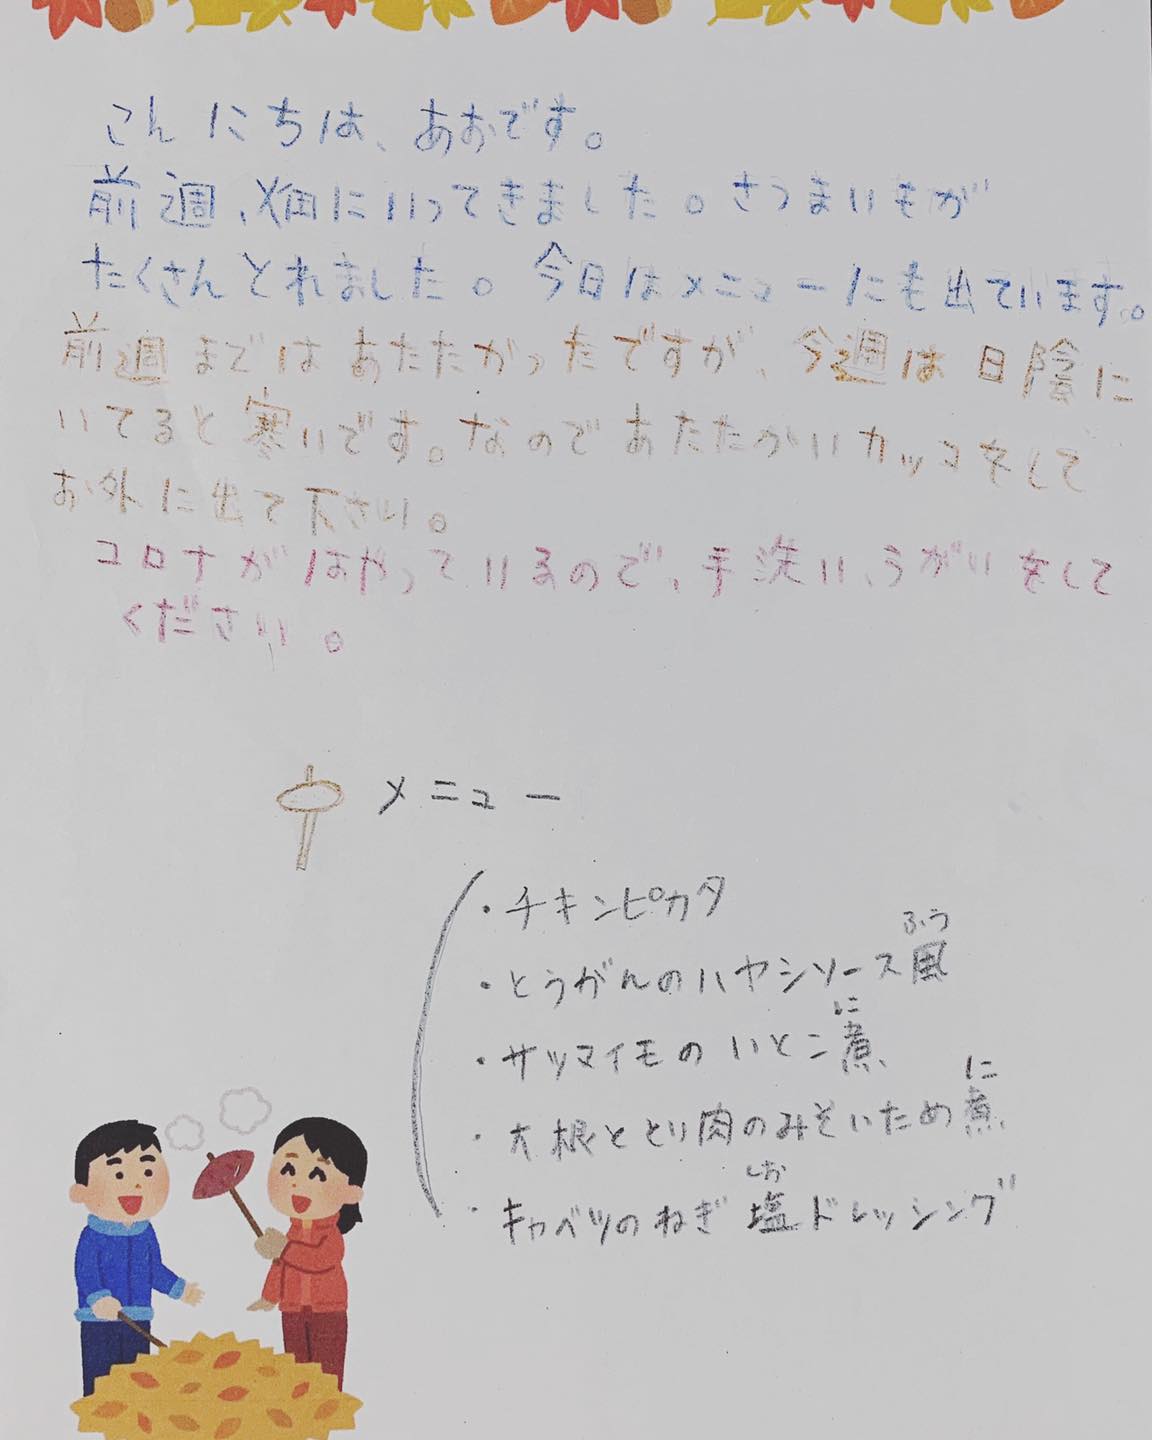 こんにちは、あおです。
前週、畑にいってきました。さつまいもが
たくさんとれました。今日はメニューにも出ています。
前週まではあたたかったですが、今週は日陰に
いてると寒いです。なのであたたかいカッコをして
お外に出て下さい。
コロナがはやっているので、手洗い、うがいをして
ください。
メニュー
・チキンピカタ
・とうがんのハヤシソース風
ふう
・サツマイモのいとこ煮
に
・大根ととり肉のみそいため煮
に
・キャベツのねぎ塩ドレッシング
しお